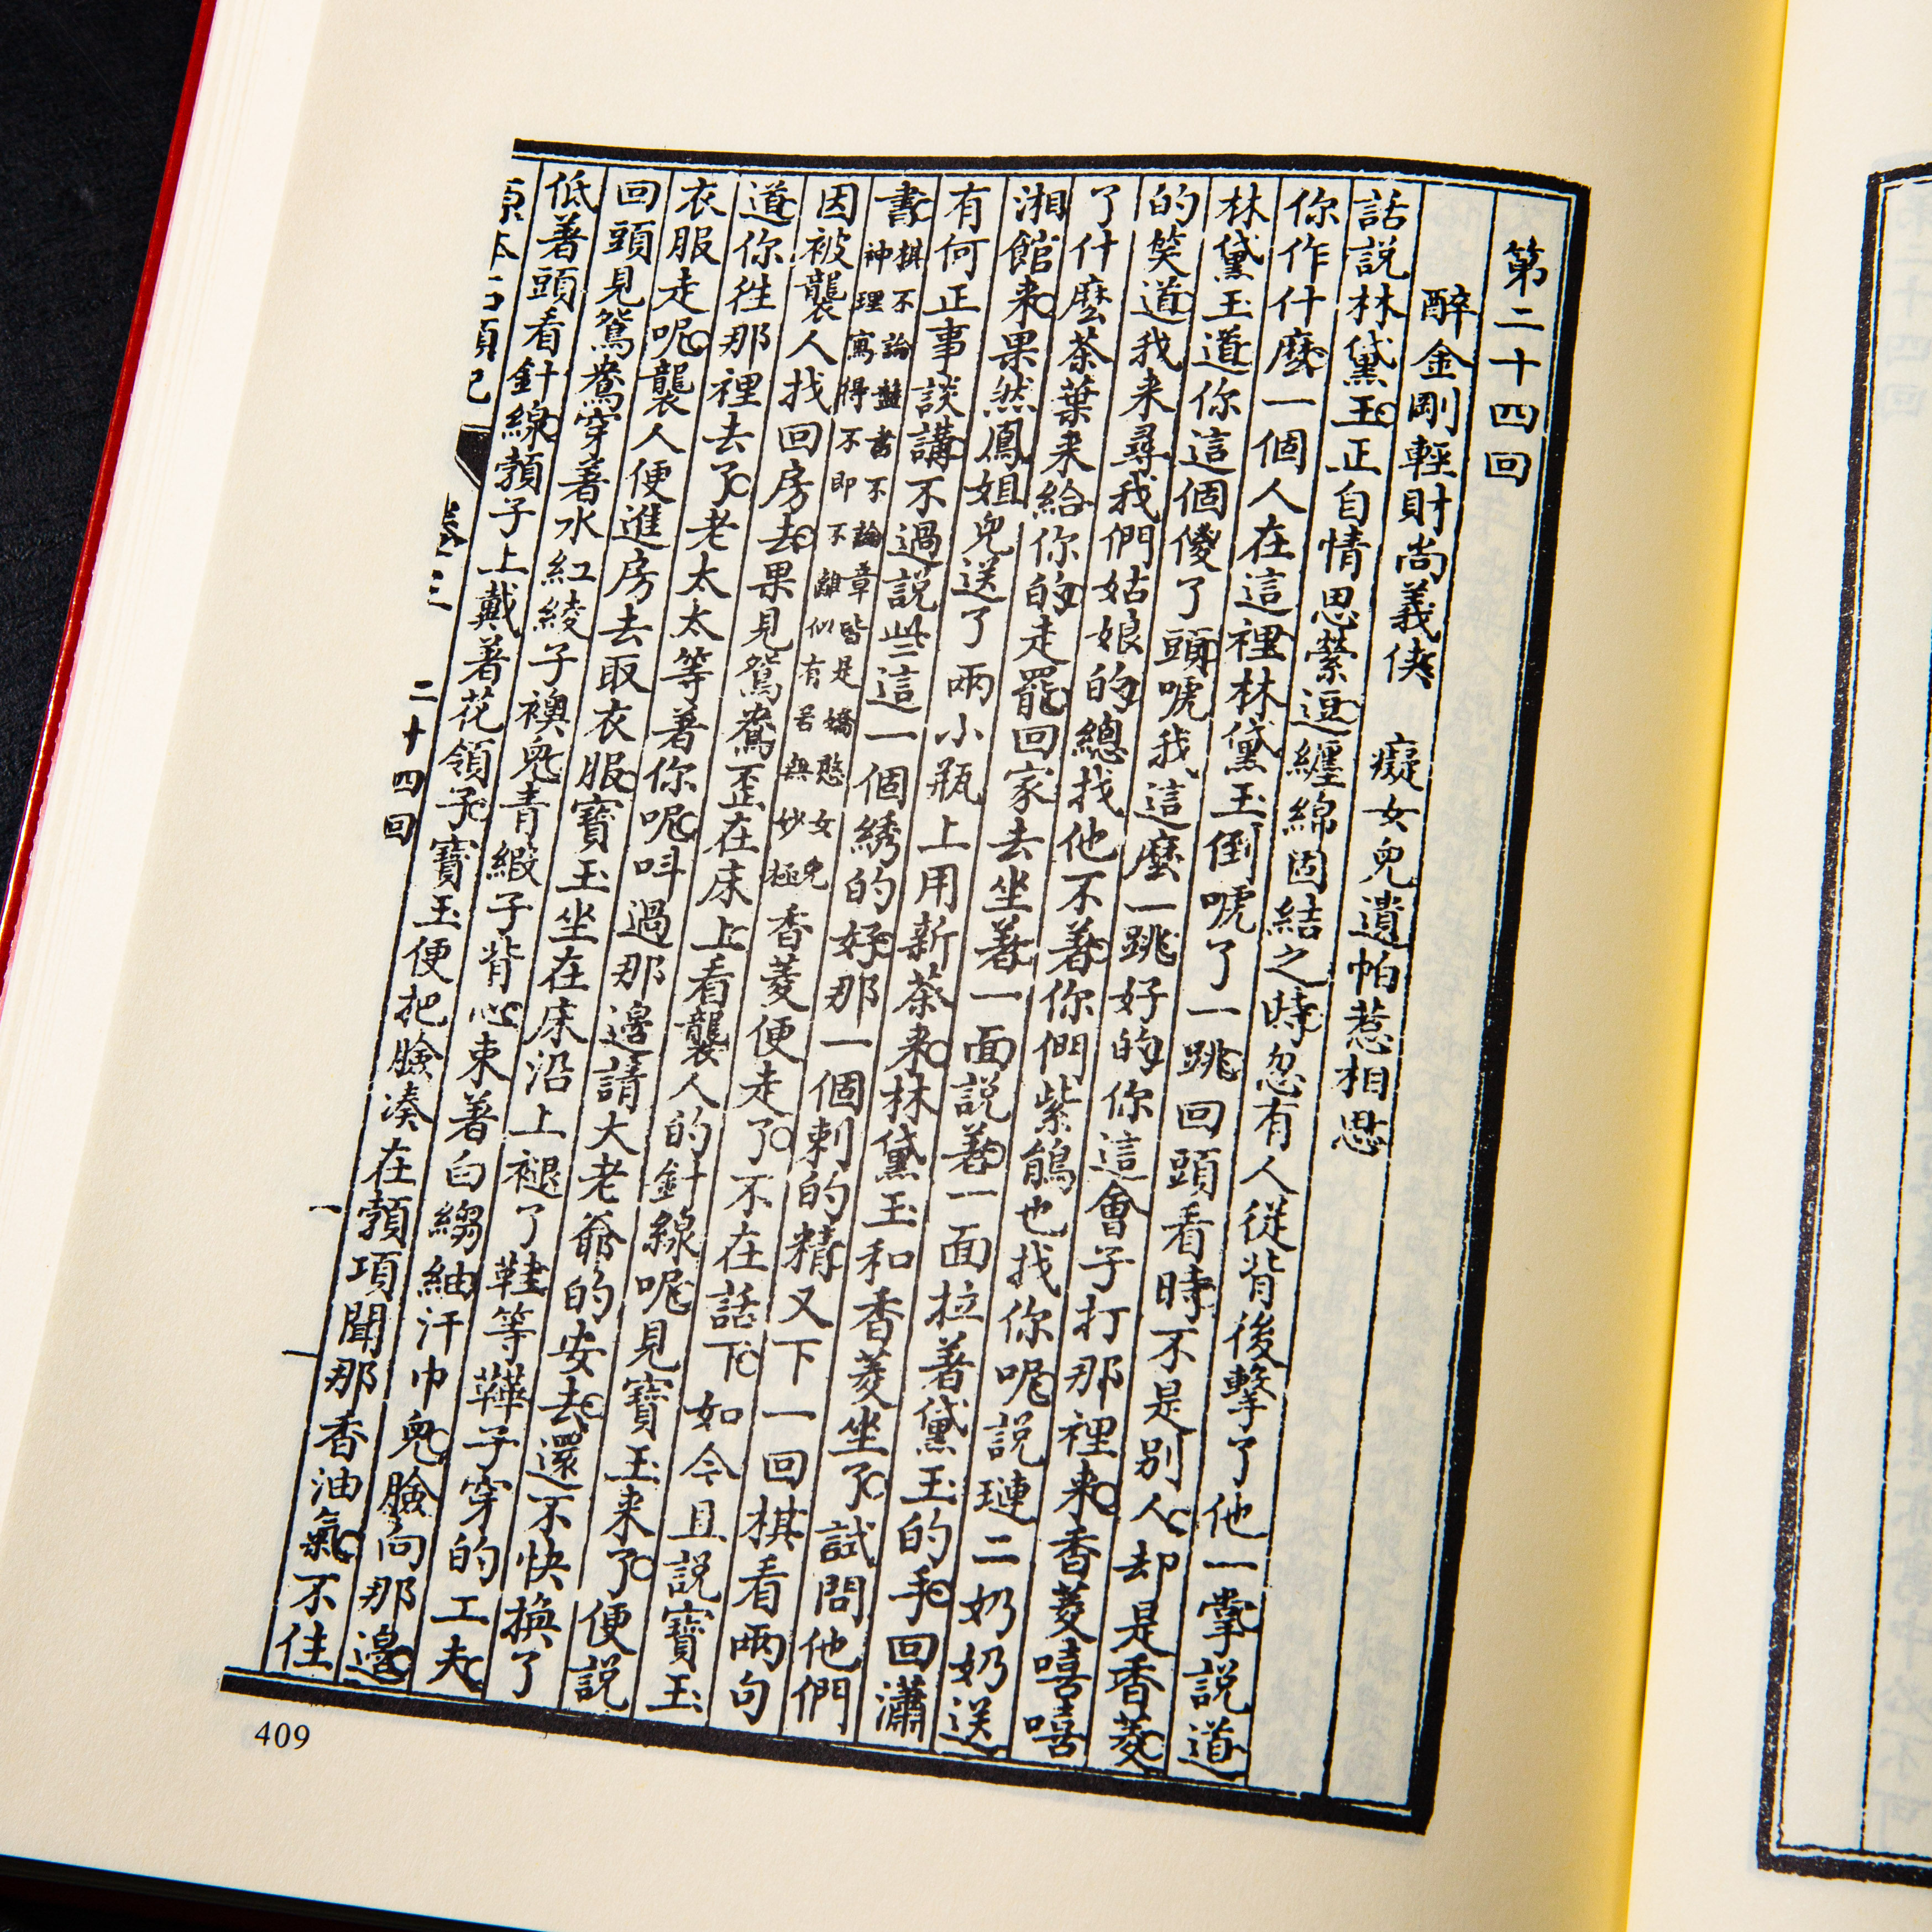 第二十四回
醉金剛輕財尚義俠　癡女兒遺帕惹相思
話説林黛玉正自情思縈逗纏綿固結之時忽有人從背後擊了他一掌説道
你作什麽一個人在這裡林黛玉倒唬了一跳回頭看時不是別人却是香菱
林黛玉道你這個傻了頭唬我這麽一跳好的你這會子打那裡来香菱嘻嘻
的笑道我来尋我們姑娘的總找他不著你們紫鵑也找你呢説璉二奶奶送
了什麽茶葉来給你的走罷回家去坐著一面説著一面拉著黛玉的手回瀟
湘館来果然鳳姐兒送了兩小瓶上用新茶来林黛玉和香菱坐了試問他們
有何正事談講不過説些這一個綉的好那一個刺的精又下一回棋看兩句
書
棋不論盤書不論章皆是嬌憨女兒
神理寫得不即不離似有若無妙極
香菱便走了不在話下如今且説寶玉
因被襲人找回房去果見鴛鴦歪在床上看襲人的針線呢見寶玉来了便説
道你徃那裡去了老太太等著你呢呌過那邊請大老爺的安去還不快換了
衣服走呢襲人便進房去取衣服寶玉坐在床沿上褪了鞋等鞾子穿的工夫
回頭見鴛鴦穿著水紅綾子襖兒青緞子背心束著白縐紬汗巾兒臉向那邊
低著頭看針線頸子上戴著花領子寶玉便把臉湊在頸項聞那香油氣不住
原本石頭記 卷三 二十四回 一
409